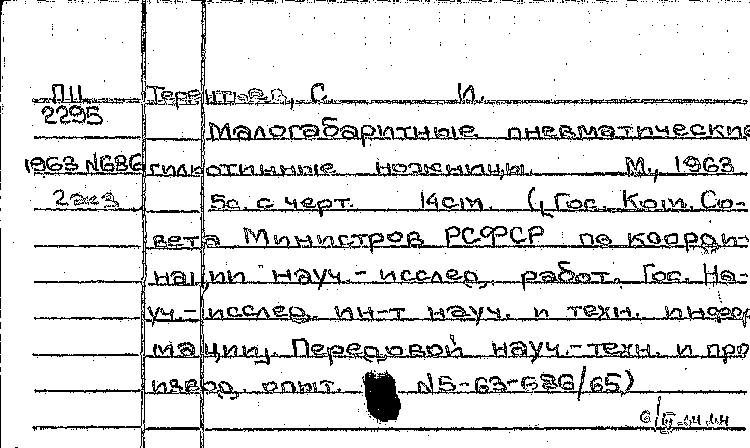 ПII Терентьев, С. И.
2295
Малогабаритные пневматические
1963 N686 гильотинные ножницы. М., 1963
5с. с черт. 14cm. (Гос. Ком. Со-
вета Министров РСФСР по коорди-
нации науч.-исслед. работ. Гос. На-
уч.-исслед. ин-т науч. и техн. инфор
мации. Передовой науч.-техн. и про
извод. опыт. N5-63-686/65)